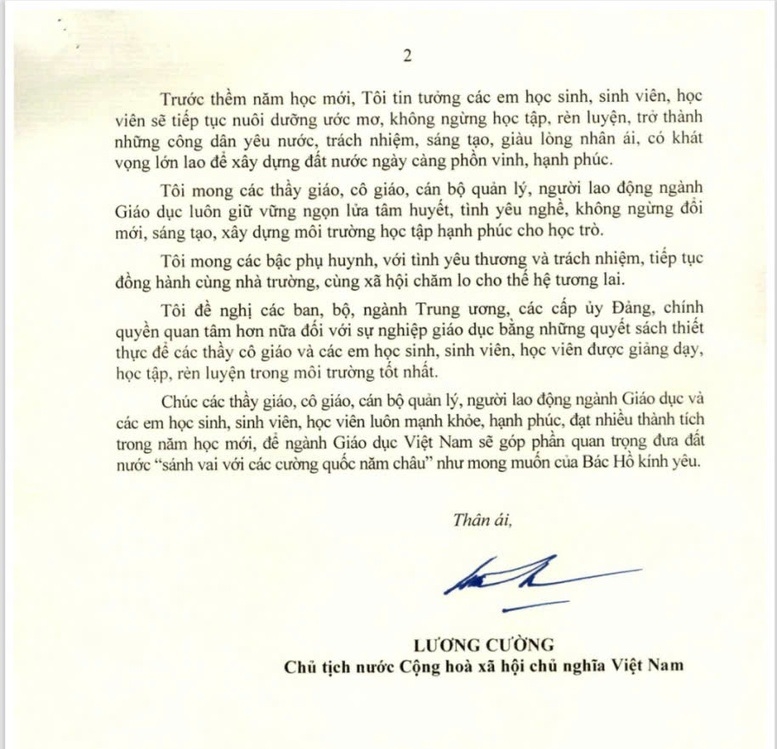 2
Trước thềm năm học mới, Tôi tin tưởng các em học sinh, sinh viên, học
viên sẽ tiếp tục nuôi dưỡng ước mơ, không ngừng học tập, rèn luyện, trở thành
những công dân yêu nước, trách nhiệm, sáng tạo, giàu lòng nhân ái, có khát
vọng lớn lao để xây dựng đất nước ngày càng phồn vinh, hạnh phúc.
Tôi mong các thầy giáo, cô giáo, cán bộ quản lý, người lao động ngành
Giáo dục luôn giữ vững ngọn lửa tâm huyết, tình yêu nghề, không ngừng đổi
mới, sáng tạo, xây dựng môi trường học tập hạnh phúc cho học trò.
Tôi mong các bậc phụ huynh, với tình yêu thương và trách nhiệm, tiếp tục
đồng hành cùng nhà trường, cùng xã hội chăm lo cho thế hệ tương lai.
Tôi đề nghị các ban, bộ, ngành Trung ương, các cấp ủy Đảng, chính
quyền quan tâm hơn nữa đối với sự nghiệp giáo dục bằng những quyết sách thiết
thực để các thầy cô giáo và các em học sinh, sinh viên, học viên được giảng dạy,
học tập, rèn luyện trong môi trường tốt nhất.
Chúc các thầy giáo, cô giáo, cán bộ quản lý, người lao động ngành Giáo dục và
các em học sinh, sinh viên, học viên luôn mạnh khỏe, hạnh phúc, đạt nhiều thành tích
trong năm học mới, để ngành Giáo dục Việt Nam sẽ góp phần quan trọng đưa đất
nước “sánh vai với các cường quốc năm châu” như mong muốn của Bác Hồ kính yêu.
Thân ái,
LƯƠNG CƯỜNG
Chủ tịch nước Cộng hoà xã hội chủ nghĩa Việt Nam